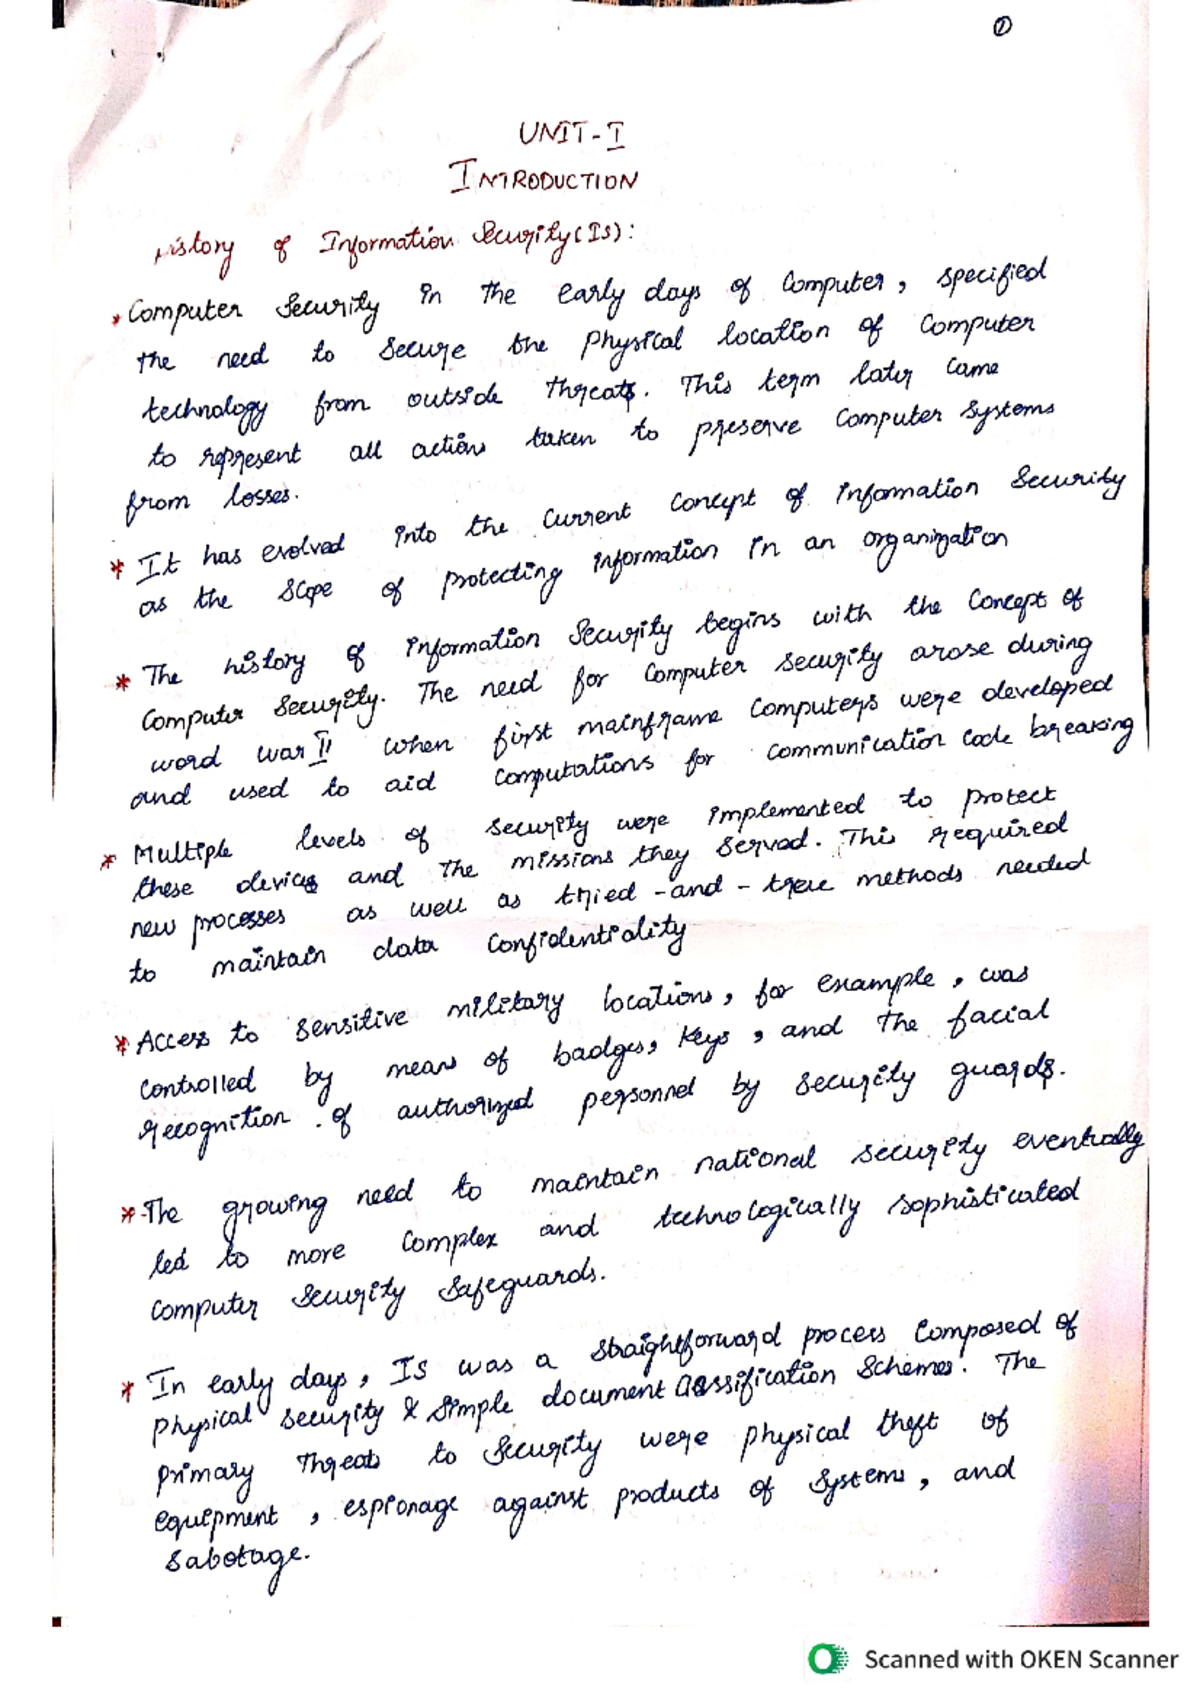 ①
UNIT-I
INTRODUCTION
History of Information Security (IS):
* Computer Security in the early days of Computer, specified
the need to secure the physical location of Computer
technology from outside threats. This term later came
to represent all actions taken to preserve Computer Systems
from losses.
* It has evolved into the current concept of Information Security
as the scope of protecting information in an organization
* The history of Information Security begins with the concept of
Computer Security. The need for Computer security arose during
word war II when first mainframe computers were developed
and used to aid computations for communication code breaking
* Multiple levels of security were implemented to protect
these devices and the missions they served. This required
new processes as well as tried-and-true methods needed
to maintain data confidentiality
* Access to sensitive military locations, for example, was
controlled by means of badges, keys, and the facial
recognition of authorized personnel by security guards.
* The growing need to maintain national security eventually
led to more complex and technologically sophisticated
computer security safeguards.
* In early days, IS was a straightforward process composed of
physical security & simple document classification schemes. The
primary threats to security were physical theft of
equipment, espionage against products of systems, and
sabotage.
Scanned with OKEN Scanner